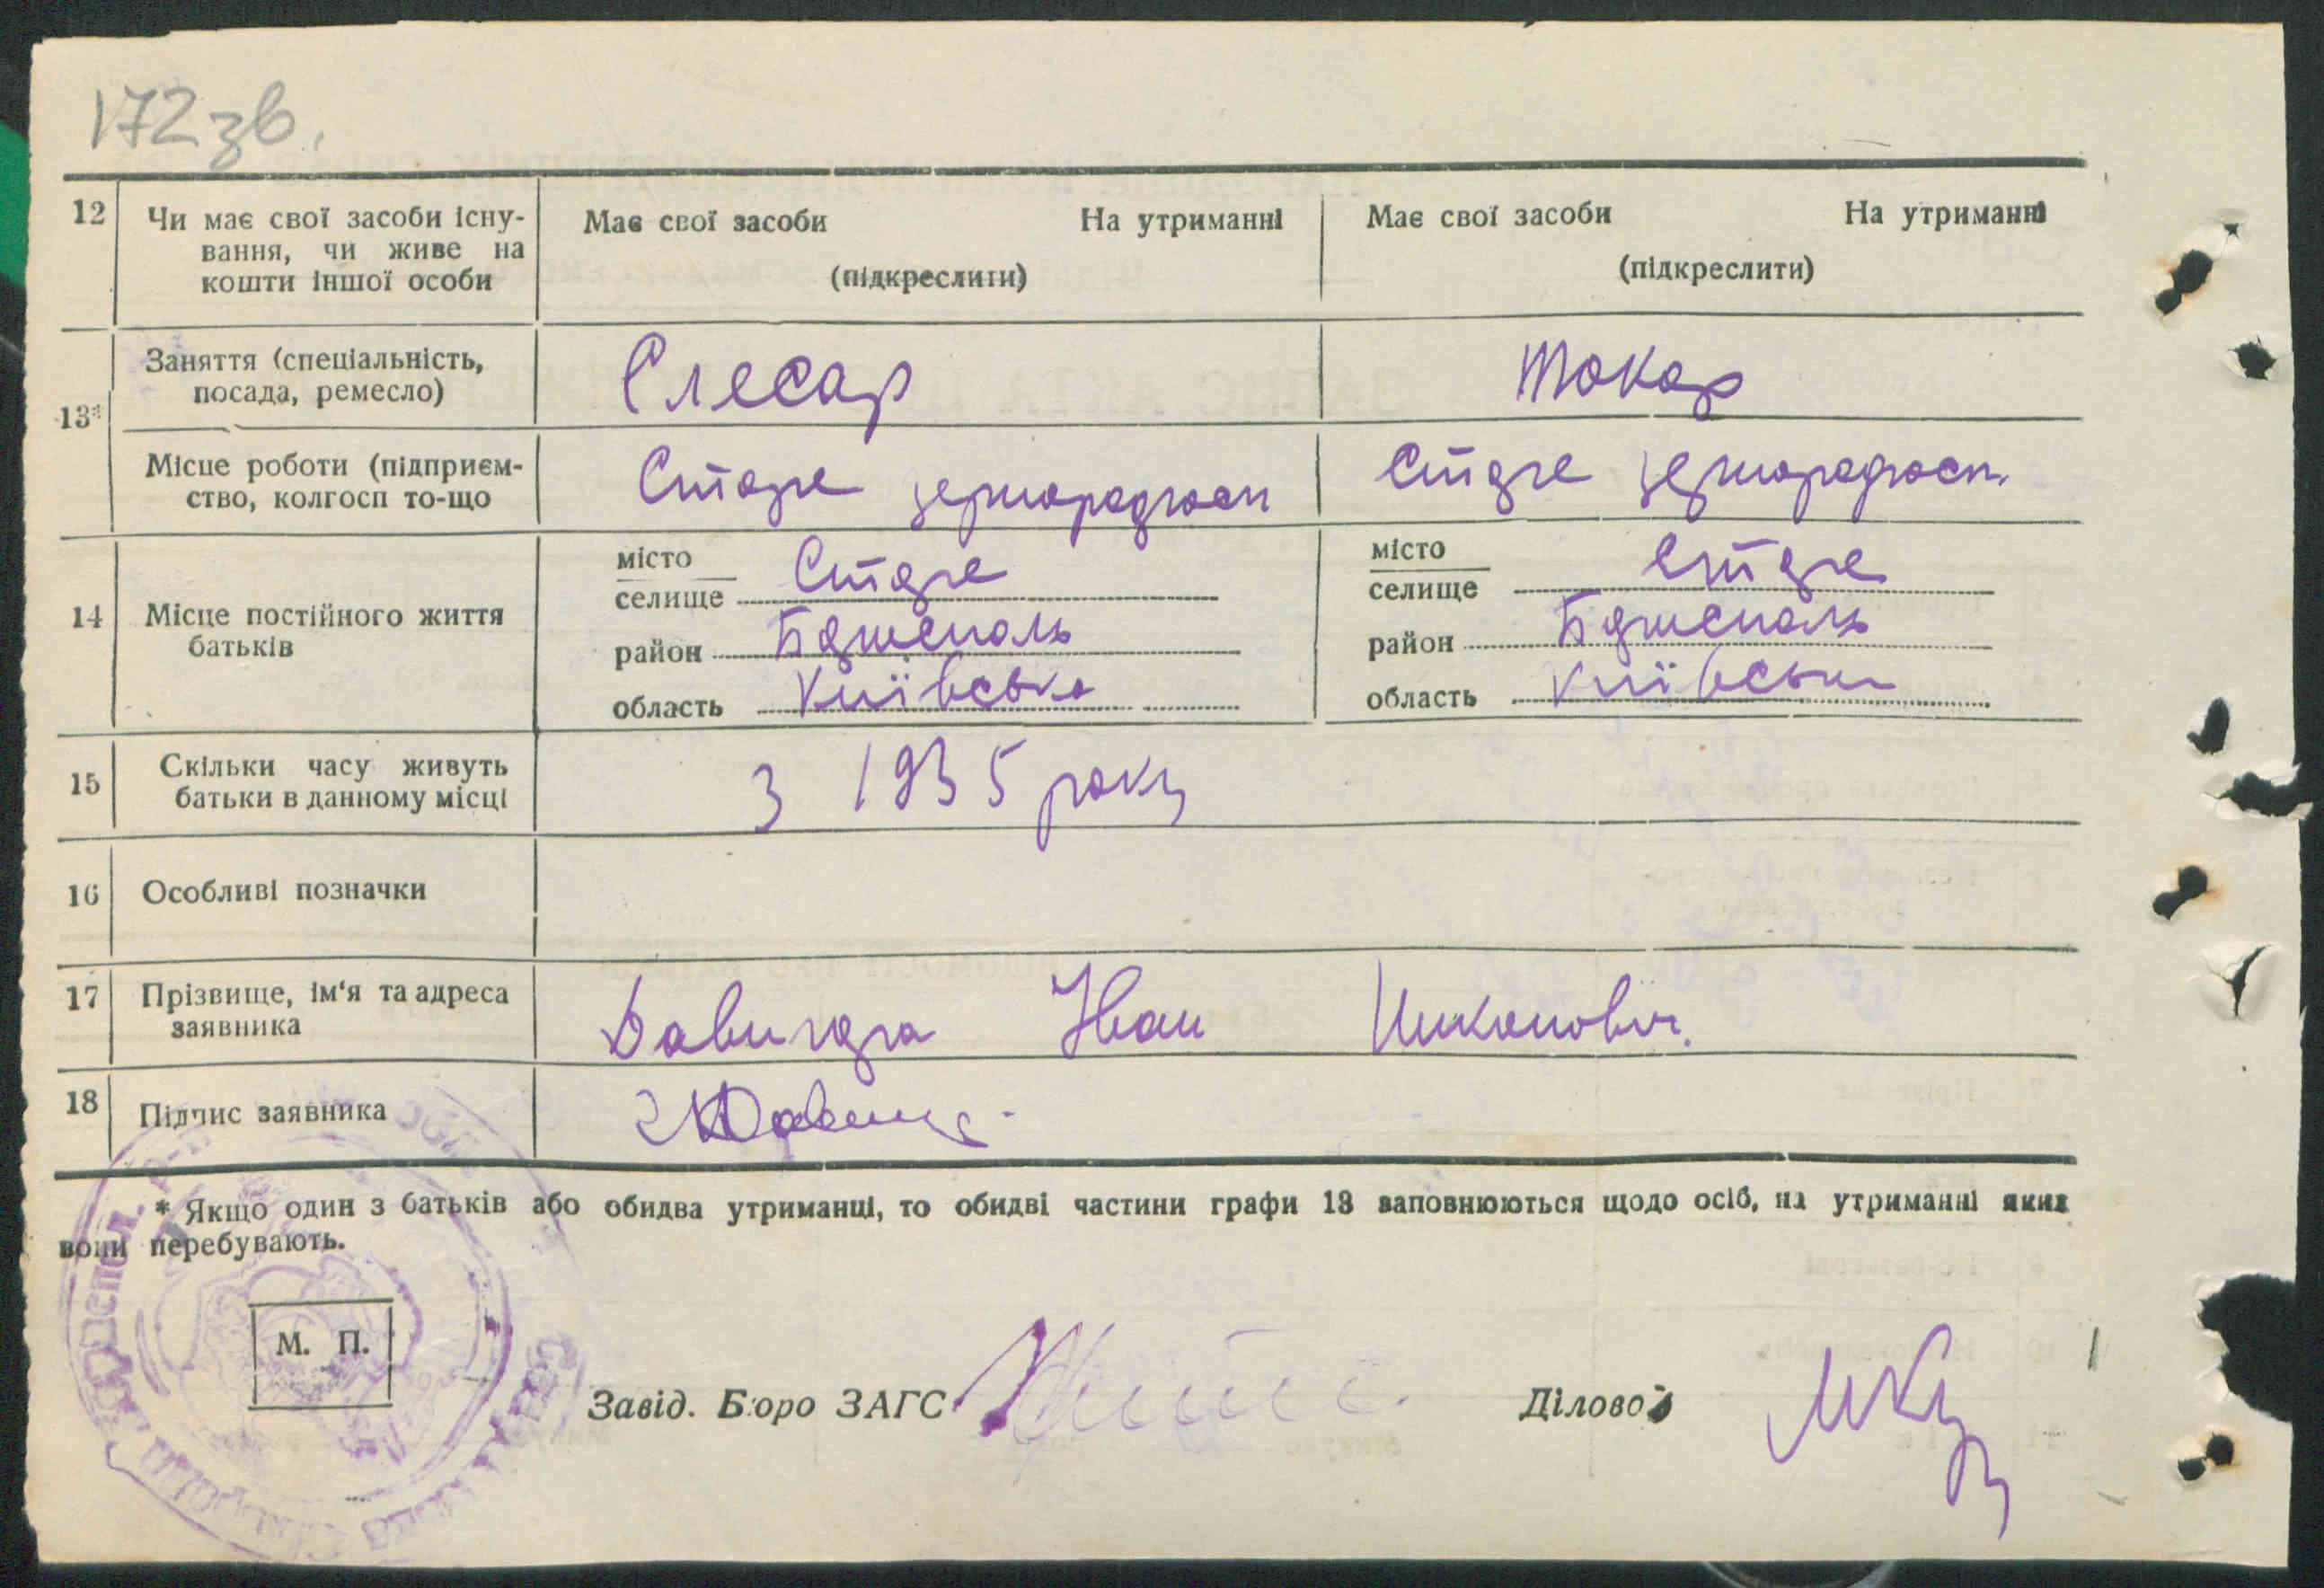 172зв.
12 Чи має свої засоби існу- Має свої засоби На утриманні Має свої засоби На утриманні
вання, чи живе на
кошти іншої особи (підкреслити) (підкреслити)
Заняття (спеціальність, Слесар Токар
13* посада, ремесло)
Місце роботи (підприєм- Старе зернорадгосп Старе зернорадгосп.
ство, колгосп то-що
місто Старе місто Старе
селище селище
14 Місце постійного життя район Бориспіль район Бориспіль
батьків
область Київська область Київська
15 Скільки часу живуть З 1935 року
батьки в данному місці
16 Особливі позначки
17 Прізвище, ім'я та адреса Іван
заявника
18 Підпис заявника
* Якщо один з батьків або обидва утриманці, то обидві частини графи 13 заповнюються щодо осіб, на утриманні яких
вони перебувають.
М. П.
Завід. Бюро ЗАГС Діловод